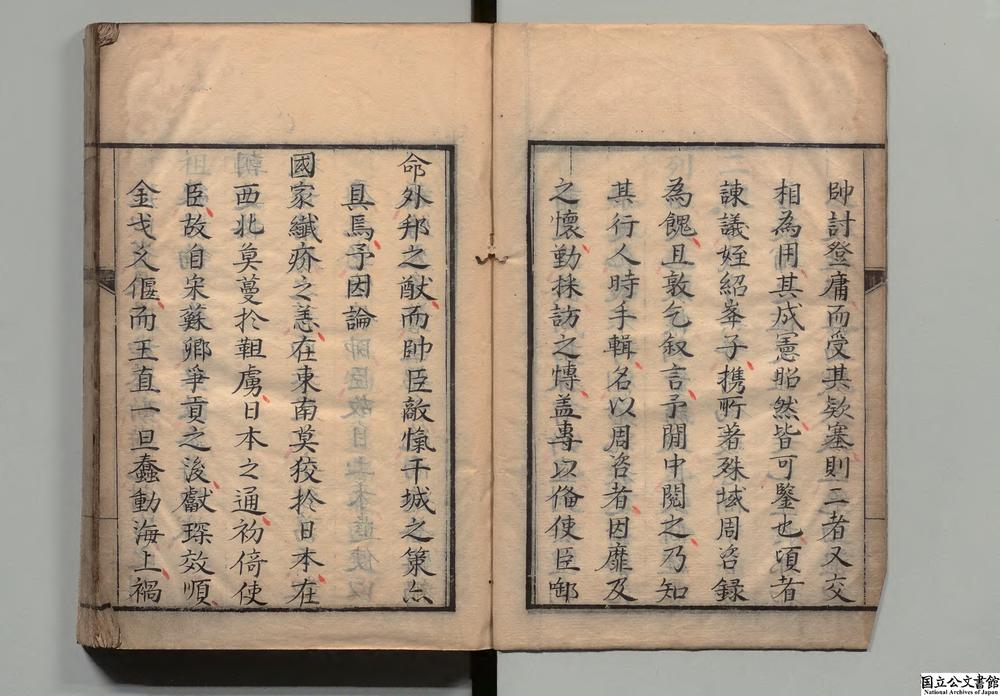 帥討登庸而受其欵塞則二者又交
相為用其成憲昭然皆可鑒也頃者
諫議姪紹峯子携所著殊域周咨録
為餽且敦乞叙言予閒中閱之乃知
其行人時手輯名以周咨者因靡及
之懷勤採訪之愽盖專以俻使臣啣
命外邦之猷而帥臣敵愾干城之策亦
具焉予因論
國家纎疥之恙在東南莫狡扵日本在
西北莫蔓扵韃虜日本之通初倚使
臣故自宋蘇卿爭貢之後獻琛效順
金戈久偃而王直一旦蠢動海上禍
国立公文書館
National Archives of Japan